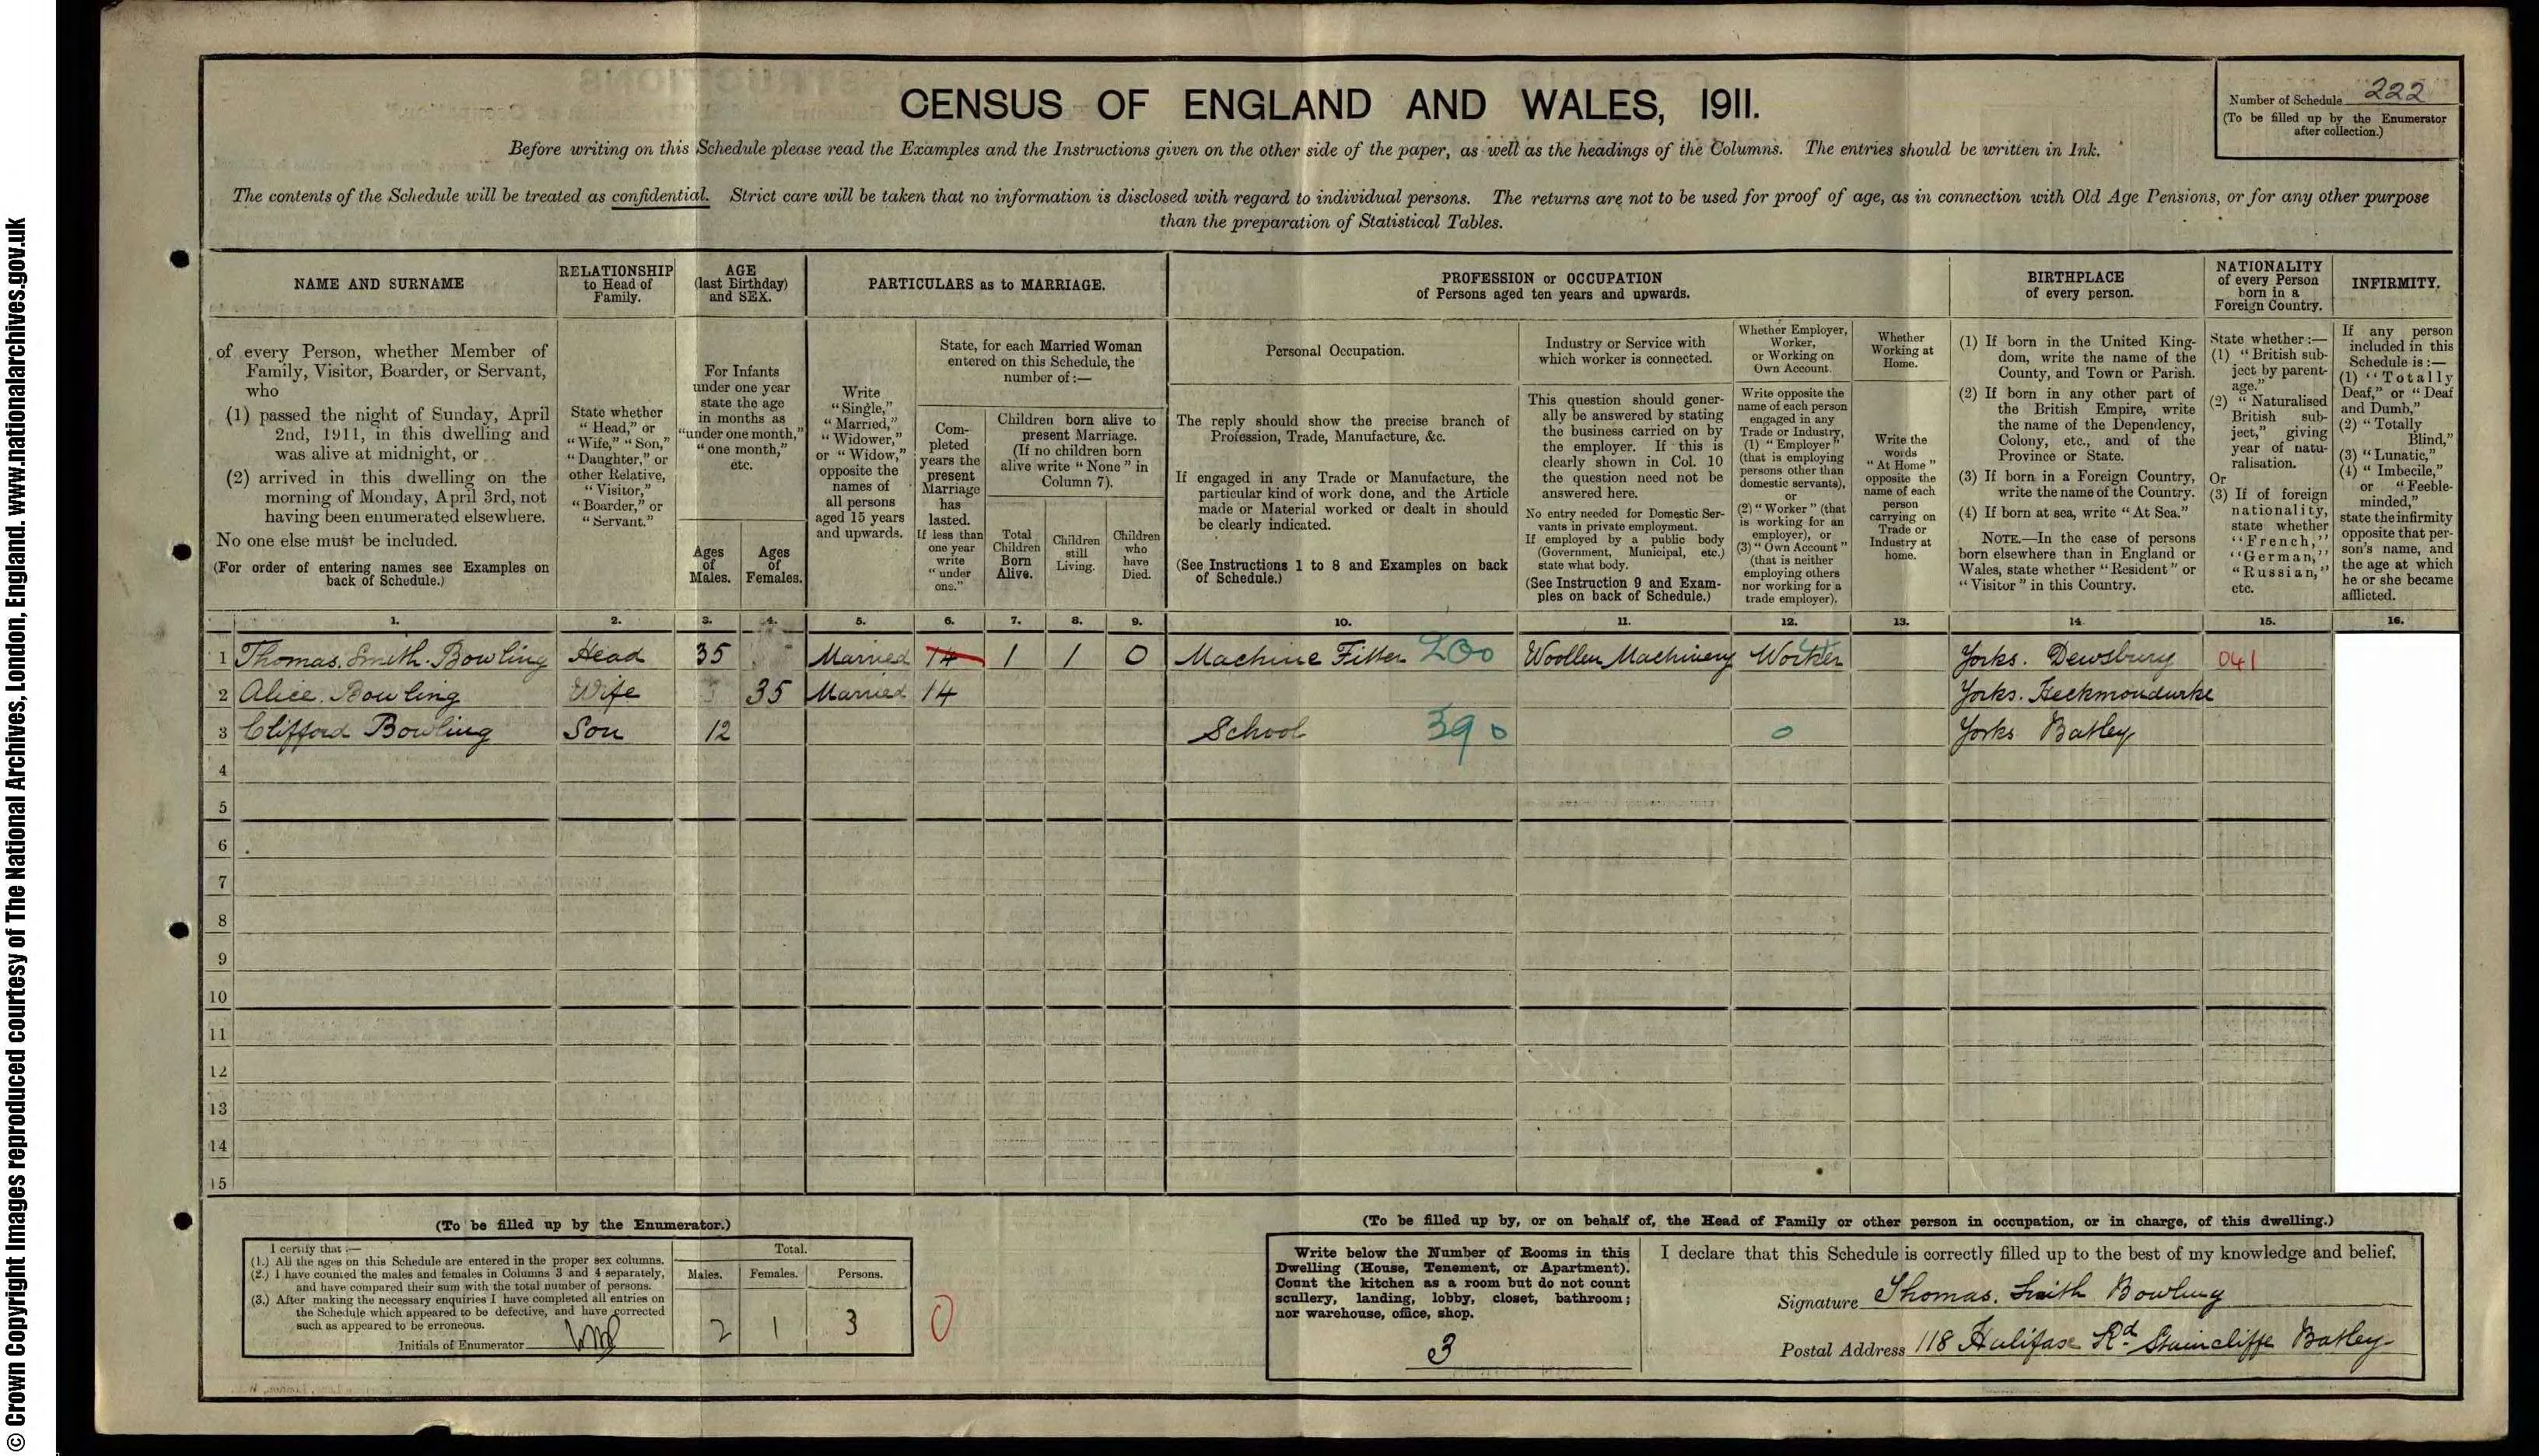 © Crown Copyright Images reproduced courtesy of The National Archives, London, England. www.nationalarchives.gov.uk
CENSUS OF ENGLAND AND WALES, 1911.
Number of Schedule 222
(To be filled up by the Enumerator
after collection.)
Before writing on this Schedule please read the Examples and the Instructions given on the other side of the paper, as well as the headings of the Columns. The entries should be written in Ink.
The contents of the Schedule will be treated as confidential. Strict care will be taken that no information is disclosed with regard to individual persons. The returns are not to be used for proof of age, as in connection with Old Age Pensions, or for any other purpose
than the preparation of Statistical Tables.
NAME AND SURNAME
of every Person, whether Member of
Family, Visitor, Boarder, or Servant,
who
(1) passed the night of Sunday, April
2nd, 1911, in this dwelling and
was alive at midnight, or
(2) arrived in this dwelling on the
morning of Monday, April 3rd, not
having been enumerated elsewhere.
No one else must be included.
(For order of entering names see Examples on
back of Schedule.)
RELATIONSHIP
to Head of
Family.
State whether
"Head," or
"Wife," "Son,"
"Daughter," or
other Relative,
"Visitor,"
"Boarder," or
"Servant."
AGE
(last Birthday)
and SEX.
For Infants
under one year
state the age
in months as
"under one month,"
"one month,"
etc.
Ages
of
Males.
Ages
of
Females.
PARTICULARS as to MARRIAGE.
Write
"Single,"
"Married,"
"Widower,"
or "Widow,"
opposite the
names of
all persons
aged 15 years
and upwards.
State, for each Married Woman
entered on this Schedule, the
number of:—
Com-
pleted
years the
present
Marriage
has
lasted.
If less than
one year
write
"under
one."
Children born alive to
present Marriage.
(If no children born
alive write "None" in
Column 7).
Total
Children
Born
Alive.
Children
still
Living.
Children
who
have
Died.
PROFESSION or OCCUPATION
of Persons aged ten years and upwards.
Personal Occupation.
The reply should show the precise branch of
Profession, Trade, Manufacture, &c.
If engaged in any Trade or Manufacture, the
particular kind of work done, and the Article
made or Material worked or dealt in should
be clearly indicated.
(See Instructions 1 to 8 and Examples on back
of Schedule.)
Industry or Service with
which worker is connected.
This question should gener-
ally be answered by stating
the business carried on by
the employer. If this is
clearly shown in Col. 10
the question need not be
answered here.
No entry needed for Domestic Ser-
vants in private employment.
If employed by a public body
(Government, Municipal, etc.)
state what body.
(See Instruction 9 and Exam-
ples on back of Schedule.)
Whether Employer,
Worker,
or Working on
Own Account.
Write opposite the
name of each person
engaged in any
Trade or Industry,
(1) "Employer"
(that is employing
persons other than
domestic servants),
or
(2) "Worker" (that
is working for an
employer), or
(3) "Own Account"
(that is neither
employing others
nor working for a
trade employer).
Whether
Working at
Home.
Write the
words
"At Home"
opposite the
name of each
person
carrying on
Trade or
Industry at
home.
BIRTHPLACE
of every person.
(1) If born in the United King-
dom, write the name of the
County, and Town or Parish.
(2) If born in any other part of
the British Empire, write
the name of the Dependency,
Colony, etc., and of the
Province or State.
(3) If born in a Foreign Country,
write the name of the Country.
(4) If born at sea, write "At Sea."
NOTE.—In the case of persons
born elsewhere than in England or
Wales, state whether "Resident" or
"Visitor" in this Country.
NATIONALITY
of every Person
born in a
Foreign Country.
State whether:—
(1) "British sub-
ject by parent-
age."
(2) "Naturalised
British sub-
ject," giving
year of natu-
ralisation.
Or
(3) If of foreign
nationality,
state whether
"French,"
"German,"
"Russian,"
etc.
INFIRMITY.
If any person
included in this
Schedule is:—
(1) "Totally
Deaf," or "Deaf
and Dumb,"
(2) "Totally
Blind,"
(3) "Lunatic,"
(4) "Imbecile,"
or "Feeble-
minded,"
state the infirmity
opposite that per-
son's name, and
the age at which
he or she became
afflicted.
1. 2. 3. 4. 5. 6. 7. 8. 9. 10. 11. 12. 13. 14 15. 16.
1 Thomas. Smith. Bowling Head 35 Married 14 1 1 0 Machine Fitter 200 Woollen Machinery Worker Yorks. Dewsbury 041
2 Alice. Bowling Wife 35 Married 14 Yorks. Heckmondwike
3 Clifford Bowling Son 12 School 390 0 Yorks Batley
4
5
6
7
8
9
10
11
12
13
14
15
(To be filled up by the Enumerator.)
I certify that:—
(1.) All the ages on this Schedule are entered in the proper sex columns.
(2.) I have counted the males and females in Columns 3 and 4 separately,
and have compared their sum with the total number of persons.
(3.) After making the necessary enquiries I have completed all entries on
the Schedule which appeared to be defective, and have corrected
such as appeared to be erroneous.
Initials of Enumerator
Total.
Males. Females. Persons.
2 1 3
0
(To be filled up by, or on behalf of, the Head of Family or other person in occupation, or in charge, of this dwelling.)
Write below the Number of Rooms in this
Dwelling (House, Tenement, or Apartment).
Count the kitchen as a room but do not count
scullery, landing, lobby, closet, bathroom;
nor warehouse, office, shop.
3
I declare that this Schedule is correctly filled up to the best of my knowledge and belief.
Signature Thomas. Smith Bowling
Postal Address 118 Halifax Rd Staincliffe Batley